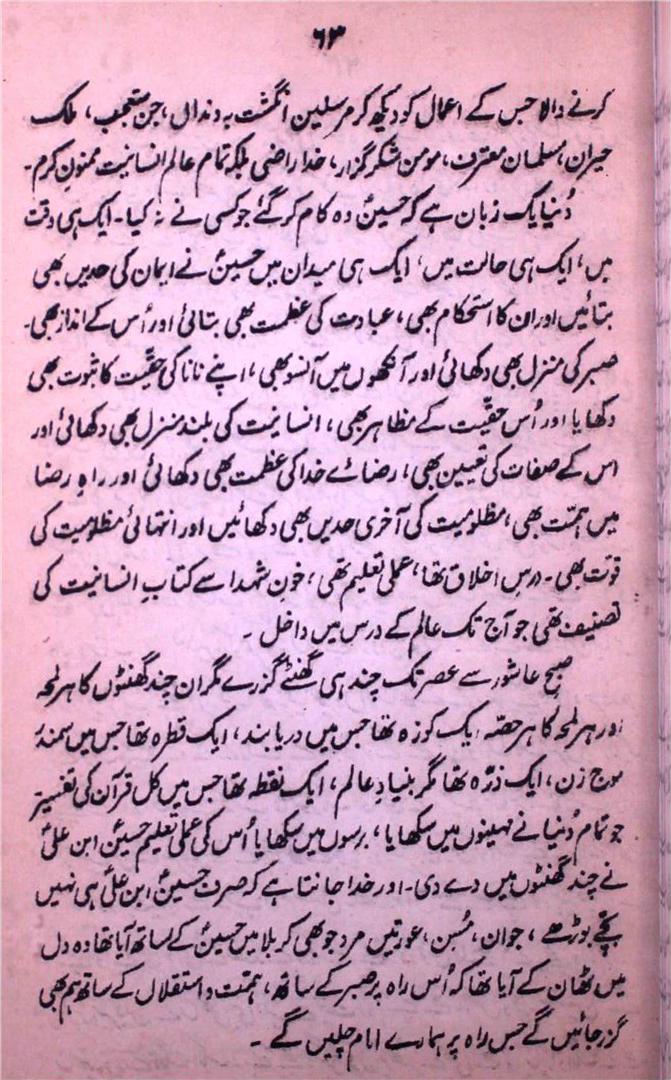 ۶۳
کرنے والا جس کے اعمال کو دیکھ کر مرسلین انگشت بہ دنداں، جن متعجب، ملک
حیران، مسلمان معترف، مومن شکر گزار، خدا راضی بلکہ تمام عالم انسانیت ممنونِ کرم۔
دُنیا یک زبان ہے کہ حسینؑ وہ کام کر گئے جو کسی نے نہ کیا۔ ایک ہی وقت
میں، ایک ہی حالت میں، ایک ہی میدان میں حسینؑ نے ایمان کی حدیں بھی
بتائیں اور ان کا استحکام بھی، عبادت کی عظمت بھی بتائی اور اُس کے انداز بھی۔
صبر کی منزل بھی دکھائی اور آنکھوں میں آنسو بھی، اپنے نانا کی حقیّت کا ثبوت بھی
دکھایا اور اُس حقیّت کے مظاہر بھی، انسانیت کی بلند منزل بھی دکھائی اور
اس کے صفات کی تعیین بھی، رضائے خدا کی عظمت بھی دکھائی اور راہِ رضا
میں ہمّت بھی، مظلومیت کی آخری حدیں بھی دکھائیں اور انتہائی مظلومیت کی
قوّت بھی۔ درسِ اخلاق تھا، عملی تعلیم تھی، خونِ شہدا سے کتابِ انسانیت کی
تصنیف تھی جو آج تک عالم کے درس میں داخل ۔
صبح عاشور سے عصر تک چند ہی گھنٹے گزرے مگر ان چند گھنٹوں کا ہر لمحہ
اور ہر لمحہ کا ہر حصّہ ایک کوزہ تھا جس میں دریا بند، ایک قطرہ تھا جس میں سمندر
موج زن، ایک ذرّہ تھا مگر بنیادِ عالم، ایک نقطہ تھا جس میں کل قرآن کی تفسیر
جو تمام دُنیا نے مہینوں میں سکھایا، برسوں میں سکھایا اُس کی عملی تعلیم حسینؑ ابن علیؑ
نے چند گھنٹوں میں دے دی۔ اور خدا جانتا ہے کہ صرف حسینؑ ابن علیؑ ہی نہیں
بچّے بوڑھے، جوان، مُسِن، عورتیں مرد جو بھی کربلا میں حسینؑ کے ساتھ آیا تھا وہ دل
میں ٹھان کے آیا تھا کہ اُس راہ پر صبر کے ساتھ، ہمّت و استقلال کے ساتھ ہم بھی
گزر جائیں گے جس راہ پر ہمارے امام چلیں گے ۔